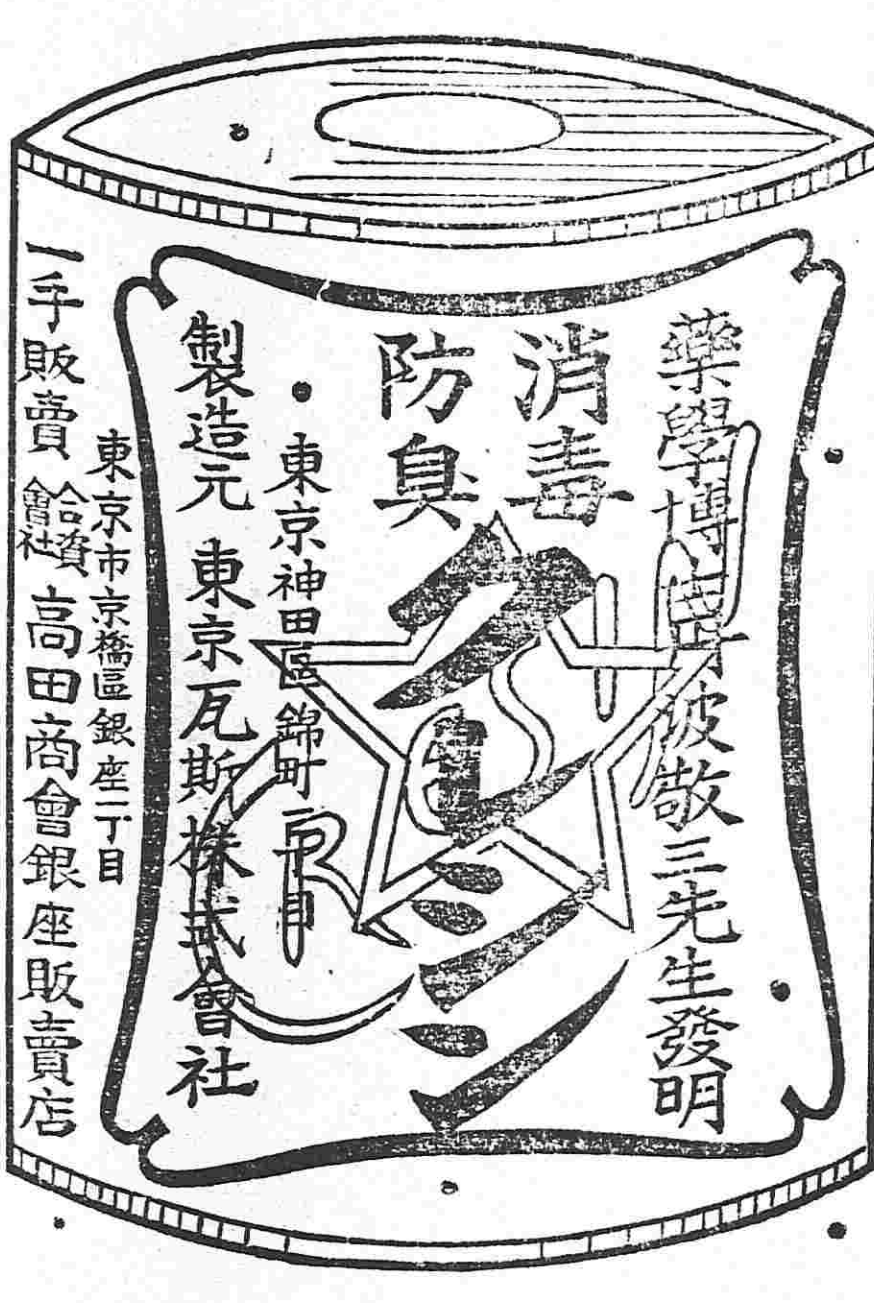 藥學博士丹波敬三先生發明
消毒
防臭
クレシン
CReSIN
東京神田區錦町三丁目
製造元 東京瓦斯株式會社
東京市京橋區銀座二丁目
一手販賣 合資會社 高田商會銀座販賣店